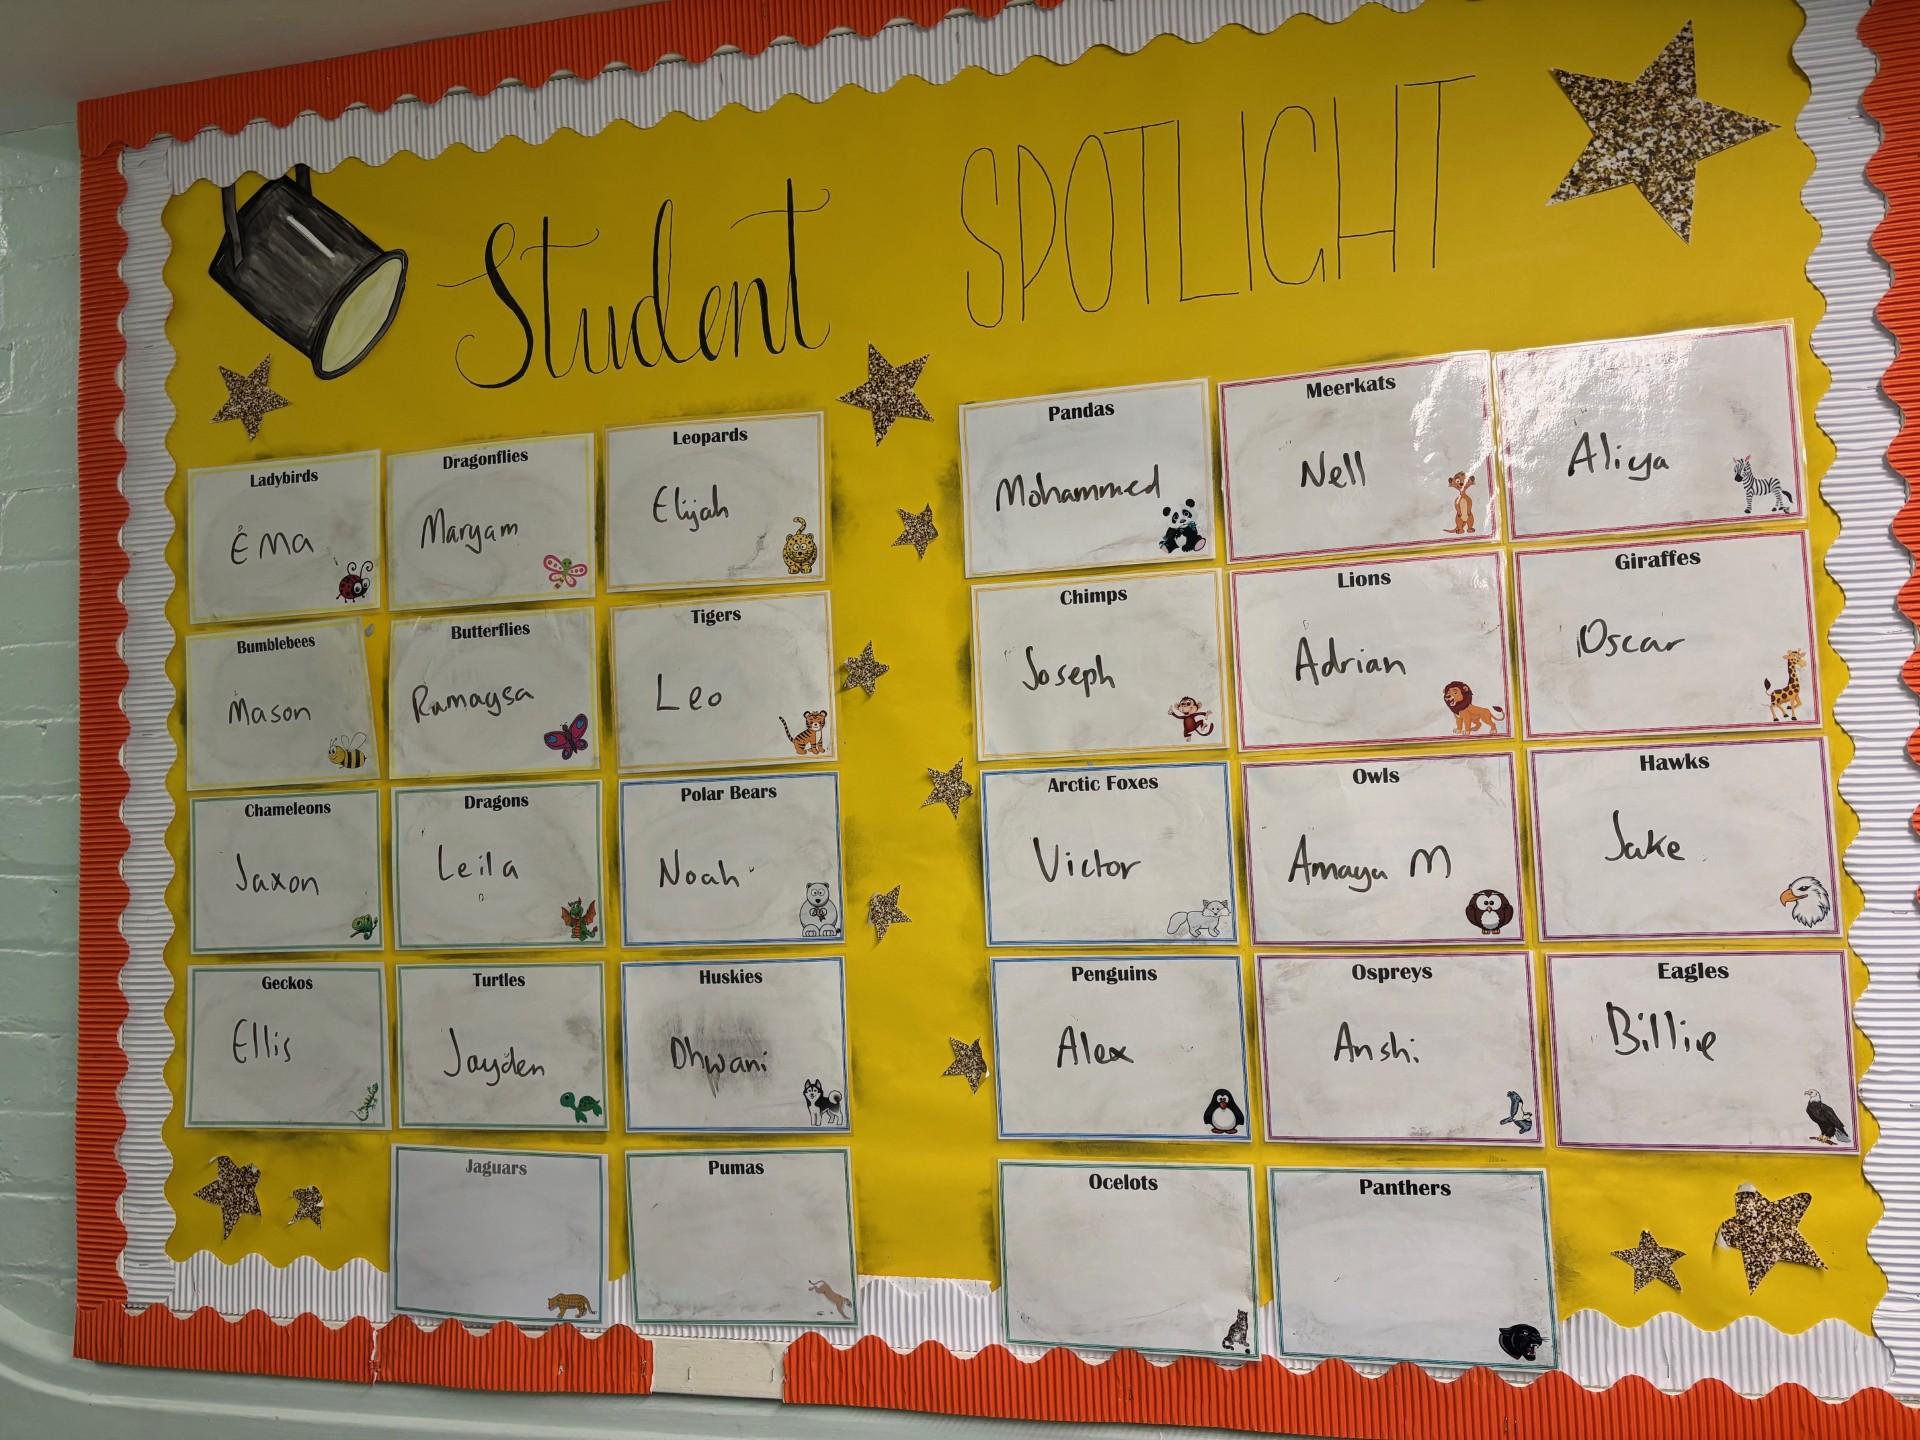 Student SPOTLIGHT
Ladybirds
Ema
Dragonflies
Maryam
Leopards
Elijah
Bumblebees
Mason
Butterflies
Rumaysa
Tigers
Leo
Chameleons
Jaxon
Dragons
Leila
Polar Bears
Noah
Geckos
Ellis
Turtles
Jayden
Huskies
Dhwani
Jaguars
Pumas
Pandas
Mohammed
Meerkats
Nell
Aliya
Chimps
Joseph
Lions
Adrian
Giraffes
Oscar
Arctic Foxes
Victor
Owls
Amaya M
Hawks
Jake
Penguins
Alex
Ospreys
Anshi
Eagles
Billie
Ocelots
Panthers